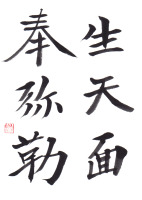 生天面
奉弥勒